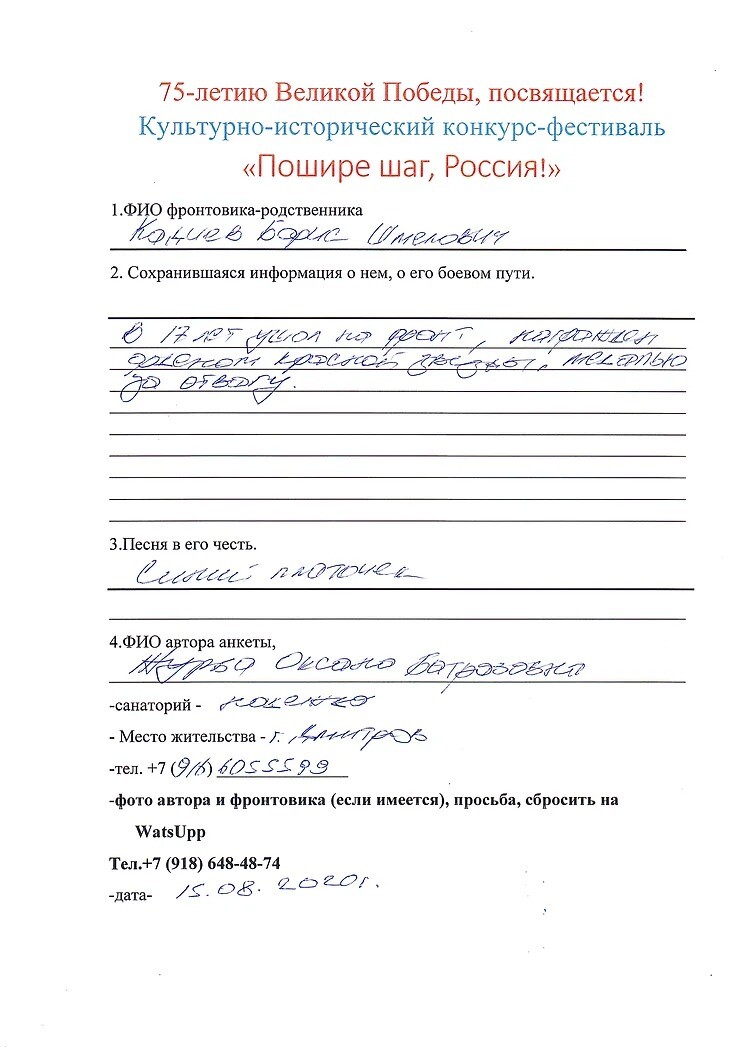 75-летию Великой Победы, посвящается!
Культурно-исторический конкурс-фестиваль
«Пошире шаг, Россия!»
1.ФИО фронтовика-родственника
Борис
2. Сохранившаяся информация о нем, о его боевом пути.
В 17 лет ушол на фронт, награжден
орденом красной звезды, медалью
за отвагу.
3.Песня в его честь.
Синий платочек
4.ФИО автора анкеты,
Журба Оксана Батразовна
-санаторий -
- Место жительства - г. Дмитров
-тел. +7 (916) 6055599
-фото автора и фронтовика (если имеется), просьба, сбросить на
WatsUpp
Тел.+7 (918) 648-48-74
-дата- 15.08.2020г.